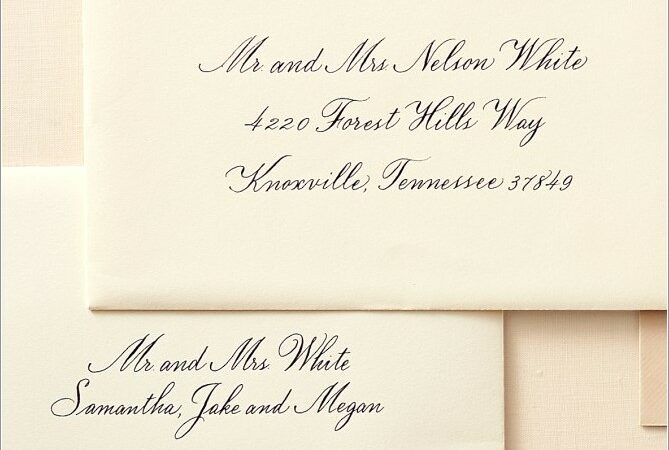 Mr. and Mrs. Nelson White
4220 Forest Hills Way
Knoxville, Tennessee 37849
Mr. and Mrs. White
Samantha, Jake and Megan